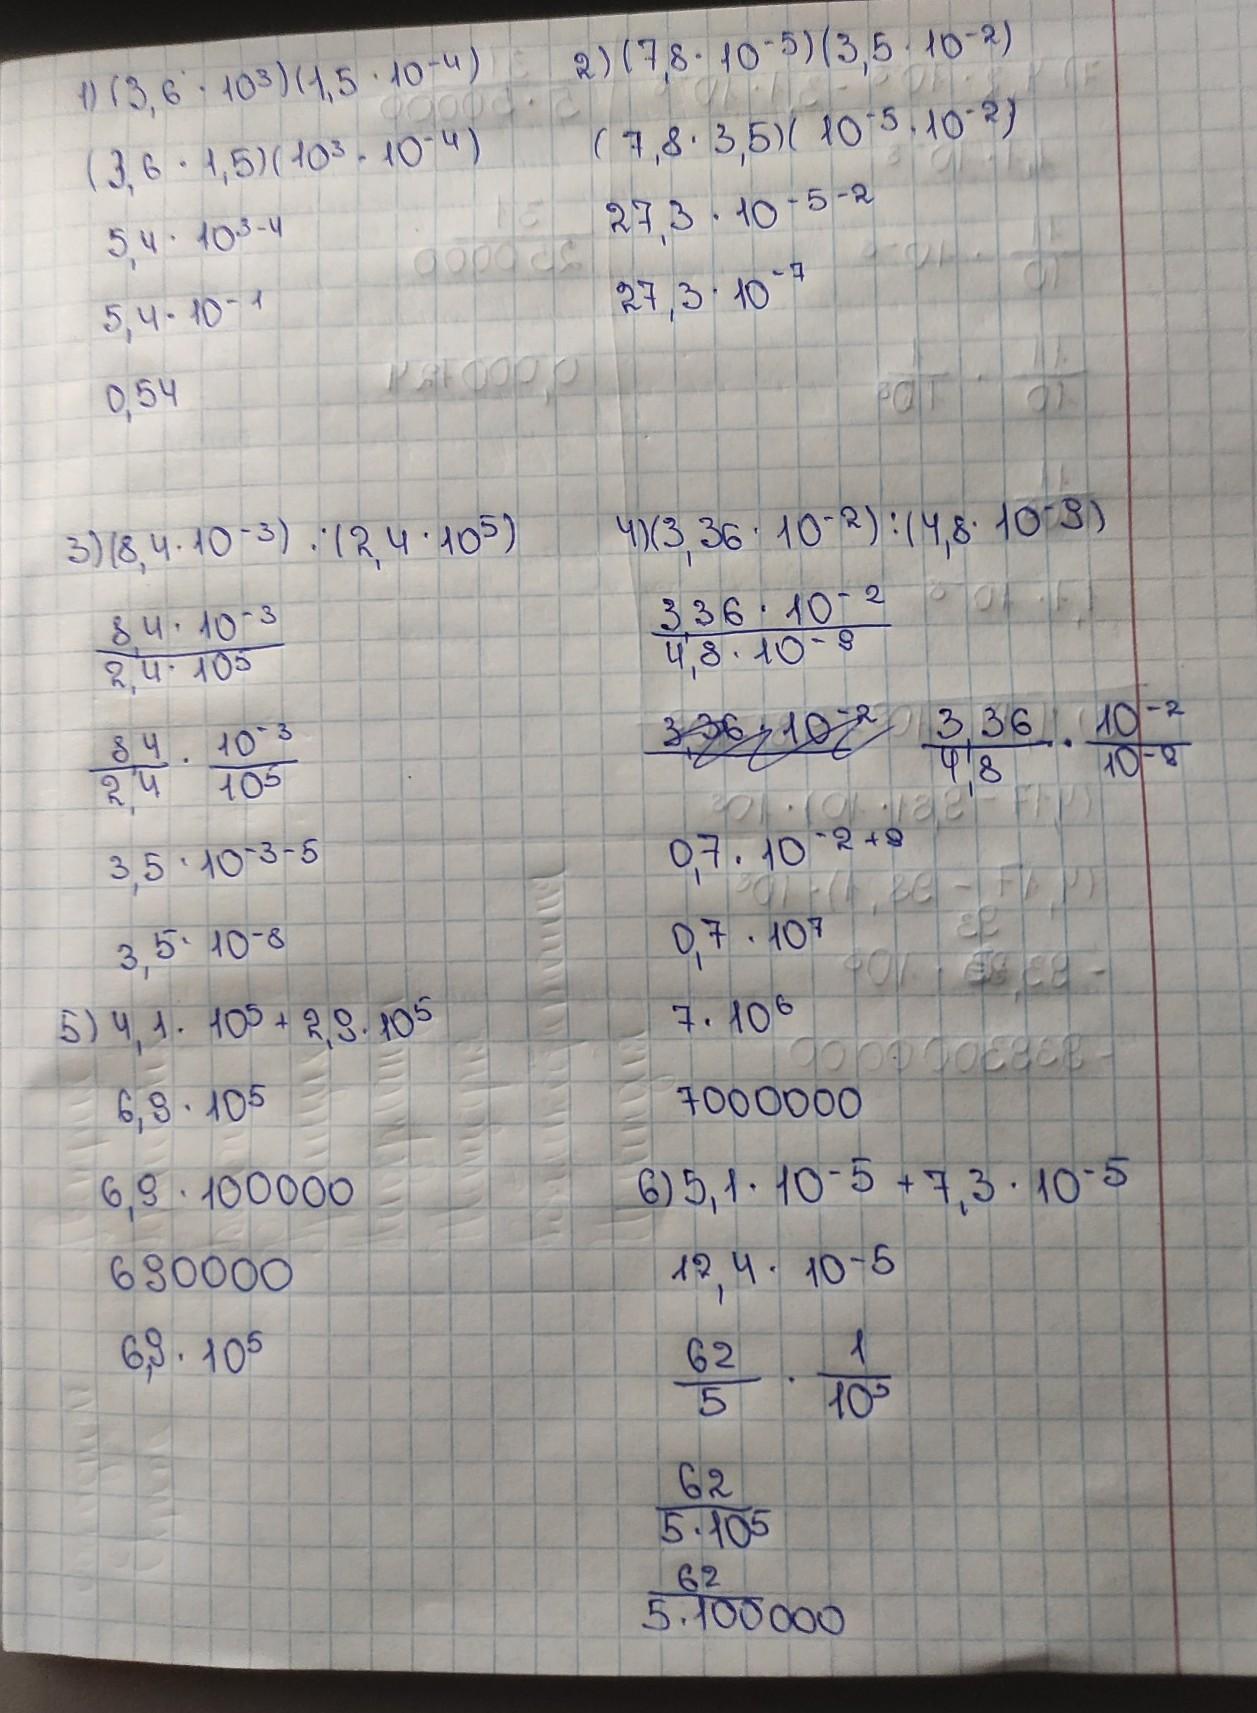 1) (3,6 · 10³)(1,5 · 10⁻⁴)
(3,6 · 1,5)(10³ · 10⁻⁴)
5,4 · 10³⁻⁴
5,4 · 10⁻¹
0,54
2) (7,8 · 10⁻⁵)(3,5 · 10⁻²)
(7,8 · 3,5)(10⁻⁵ · 10⁻²)
27,3 · 10⁻⁵⁻²
27,3 · 10⁻⁷
3) (8,4 · 10⁻³) : (2,4 · 10⁵)
8,4 · 10⁻³ / 2,4 · 10⁵
8,4 / 2,4 · 10⁻³ / 10⁵
3,5 · 10⁻³⁻⁵
3,5 · 10⁻⁸
4) (3,36 · 10⁻²) : (4,8 · 10⁻⁹)
3,36 · 10⁻² / 4,8 · 10⁻⁹
3,36 / 4,8 · 10⁻² / 10⁻⁹
0,7 · 10⁻²⁺⁹
0,7 · 10⁷
7 · 10⁶
7000000
5) 4,1 · 10⁵ + 2,9 · 10⁵
6,9 · 10⁵
6,9 · 100000
690000
6,9 · 10⁵
6) 5,1 · 10⁻⁵ + 7,3 · 10⁻⁵
12,4 · 10⁻⁵
62 / 5 · 1 / 10⁵
62 / 5 · 10⁵
62 / 5 · 100000